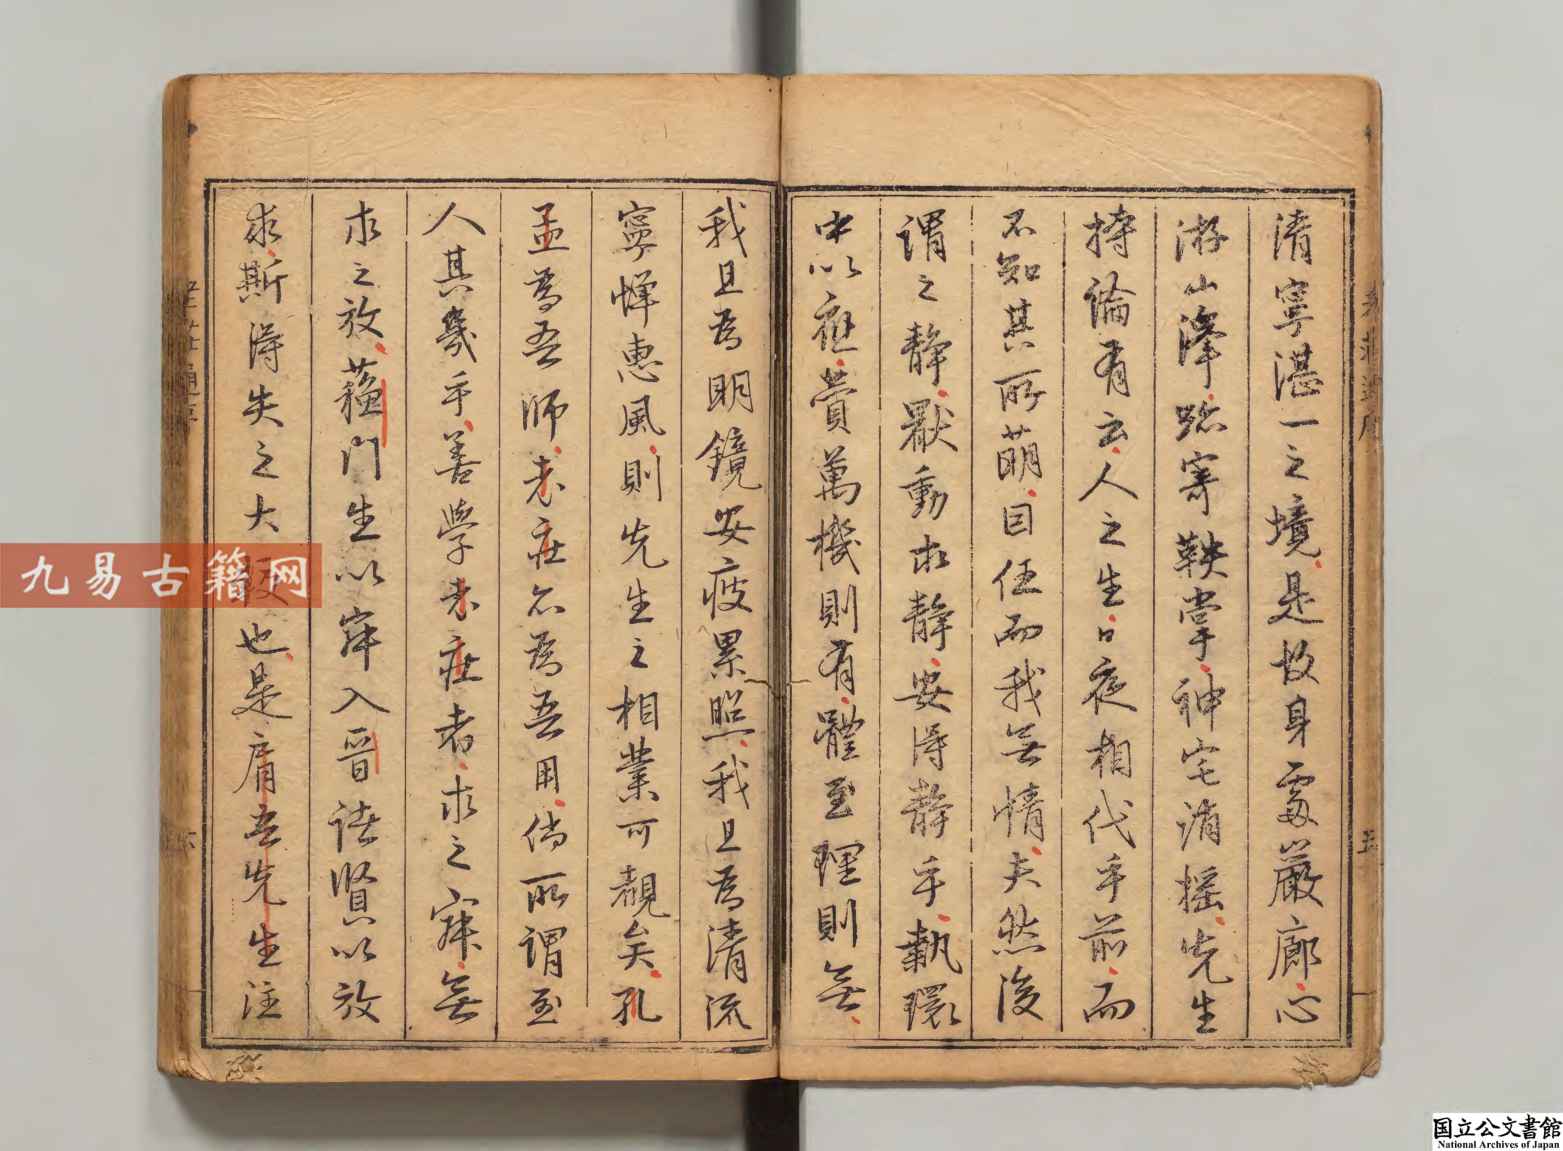 清寧湛一之境是故身處巖廊心
游山澤跡寄鞅掌神宅逍搖先生
持論有云人之生日夜相代乎前而
不知其所萌因任而我無情夫然後
謂之靜厭動求靜安得靜乎執環
中以應蕢萬機則有體至理則無
我且為明鏡安疲累照我且為清流
寧憚惠風則先生之相業可覩矣孔
孟為吾師老莊亦為吾用倘所謂至
人其幾乎善學老莊者求之寂無
求之放蘓門生以寂入晉諸賢以放
求斯得失之大較也是庸吾先生注
老莊通序
五
六
九易古籍网
国立公文書館
National Archives of Japan